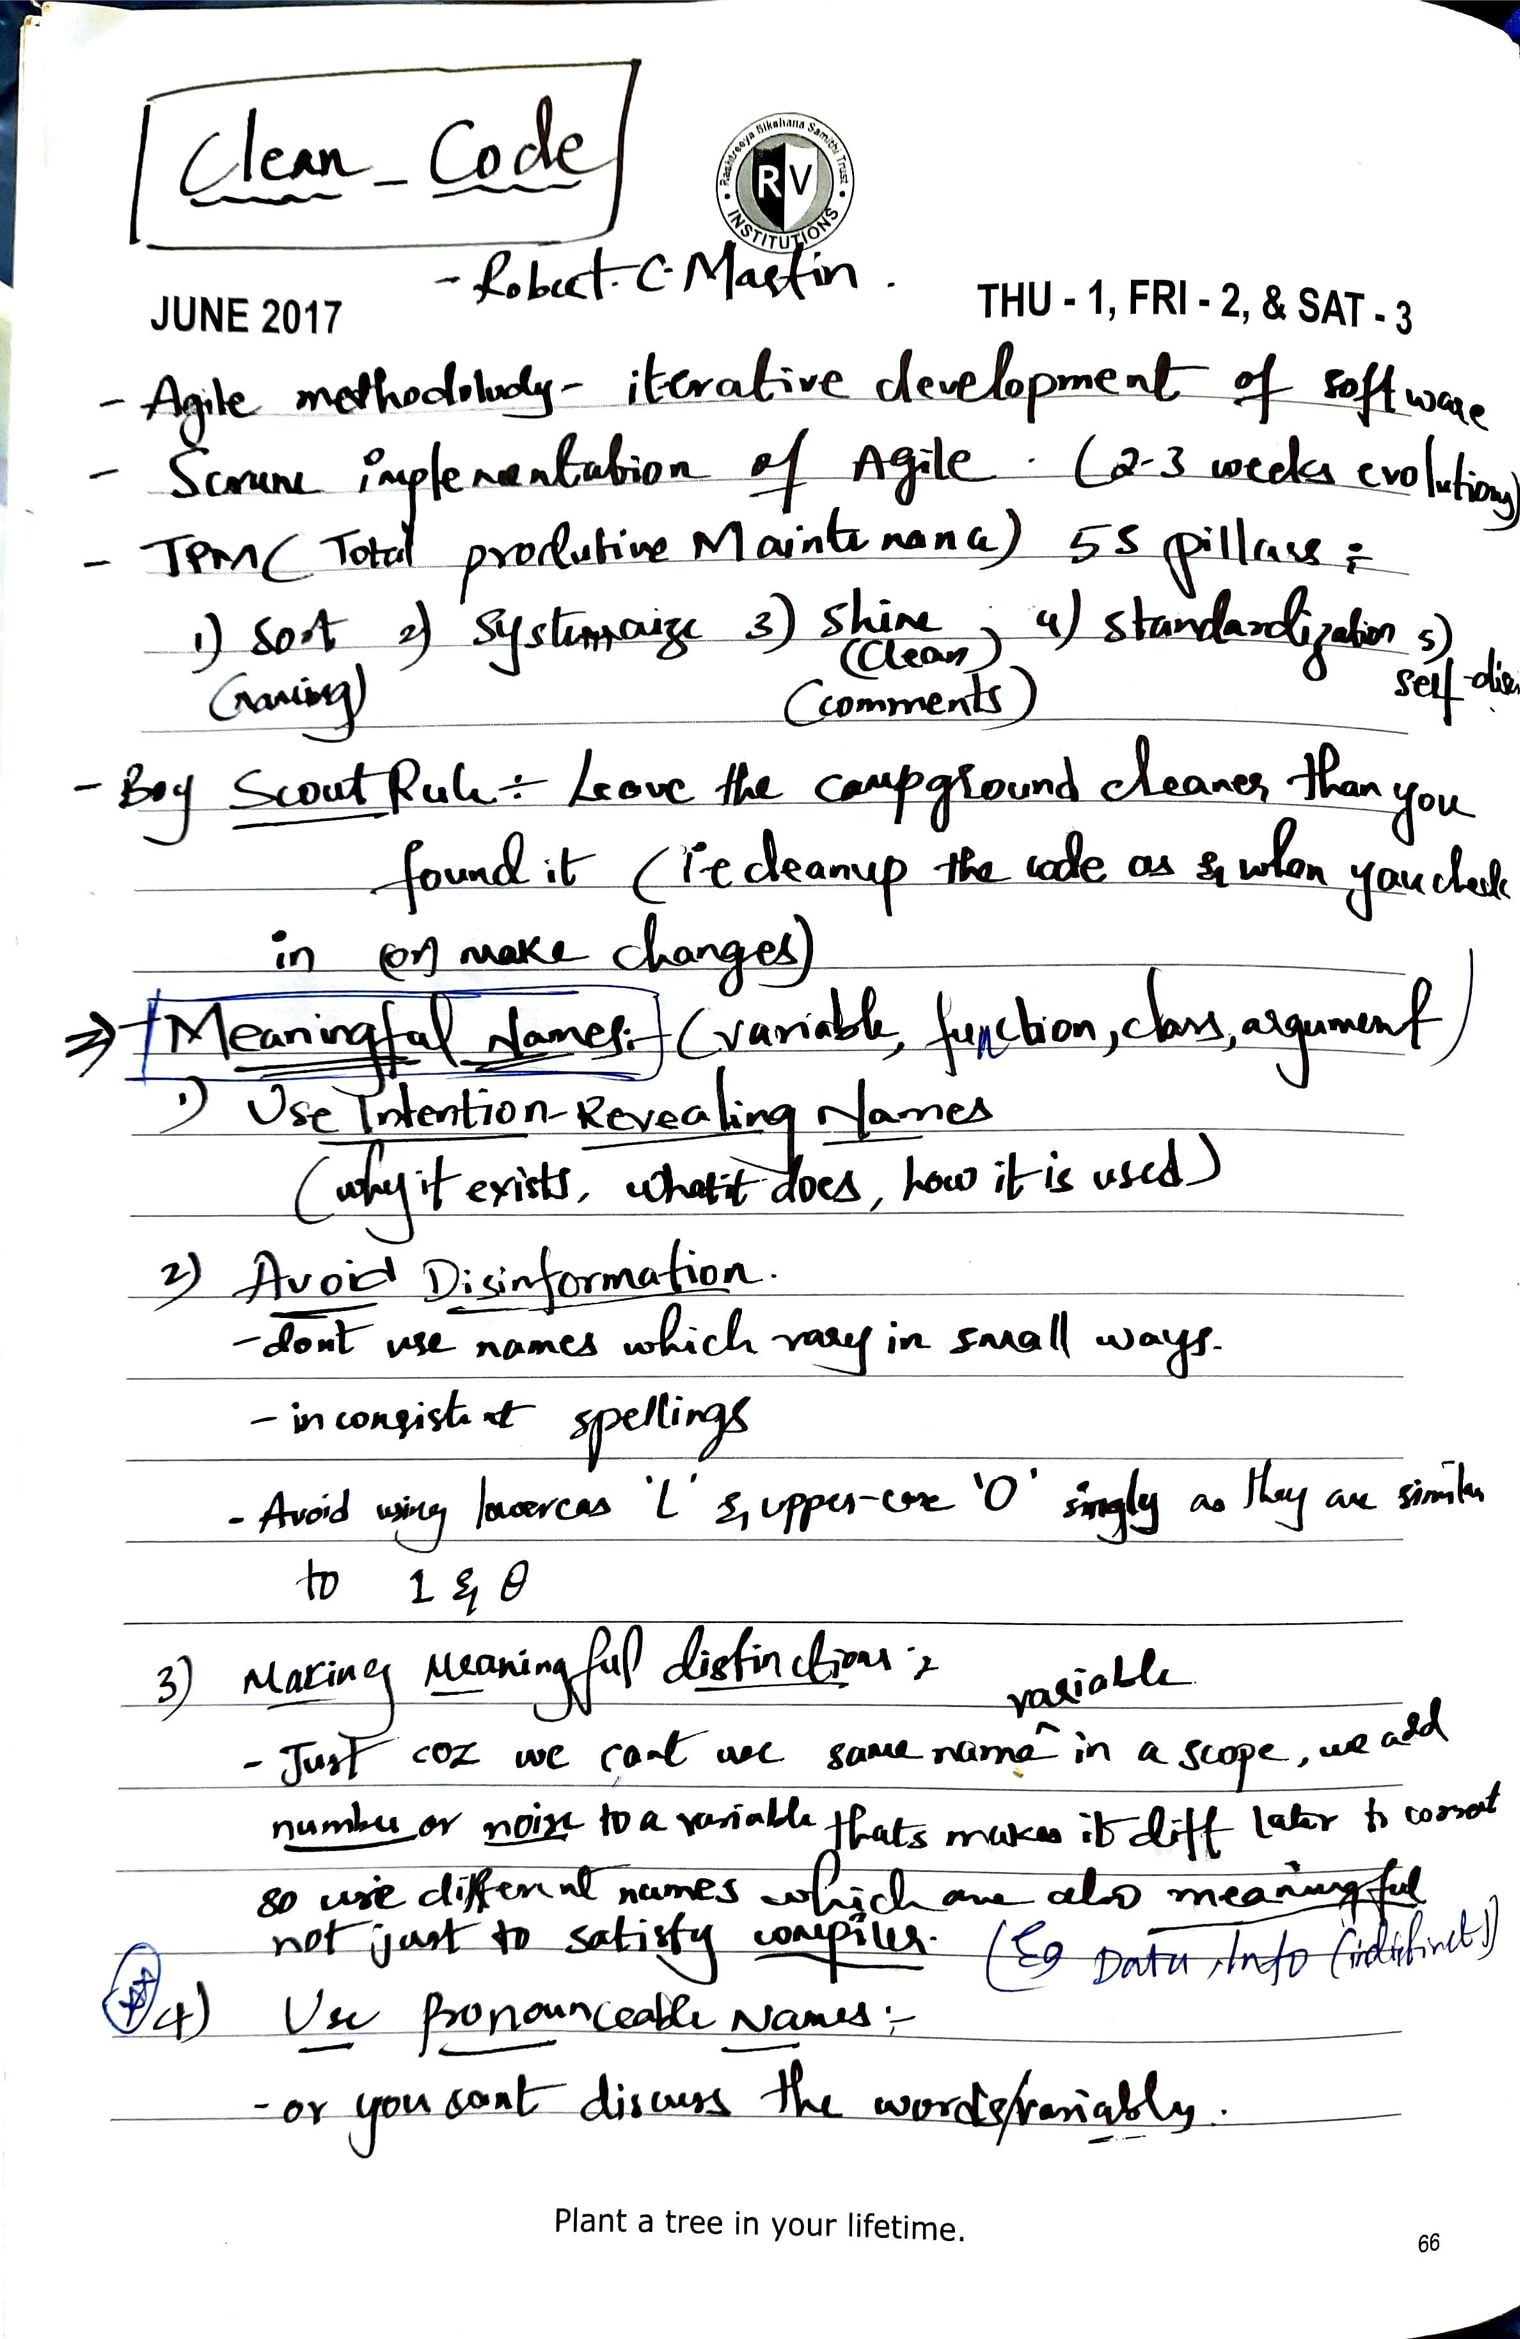 Clean - Code
Rashtreeya Sikshana Samithi Trust
RV
INSTITUTIONS
- Robert. C. Martin.
JUNE 2017
THU - 1, FRI - 2, & SAT - 3
- Agile methodoludy - iterative development of software
- Scrum implementation of Agile. (2-3 weeks evolutions)
- TPM (Total produtive Maintenance) 5S pillars :-
1) Sort 2) Systemaize 3) Shine , 4) standardization 5)
(Clean) self-dis
(naming) (comments)
- Boy Scout Rule :- Leave the campground cleaner than you
found it (i.e cleanup the code as & when you check
in (or) make changes)
⇒ Meaningful Names:- (variable, function, class, argument)
1) Use Intention-Revealing Names
(why it exists, what it does, how it is used)
2) Avoid Disinformation.
- dont use names which vary in small ways.
- inconsistent spellings
- Avoid using lowercas 'L' & upper-case 'O' singly as they are similar
to 1 & 0
3) Making Meaningful distinctions :-
variable
- Just coz we cant use same name ^ in a scope, we add
number or noise to a variable thats makes it diff later to correct
so use different names which are also meaningful
not just to satisfy compiler. (Eg Data, Info (indistinct))
4) Use Pronounceable Names :-
- or you cant discuss the words/variably.
Plant a tree in your lifetime.
66